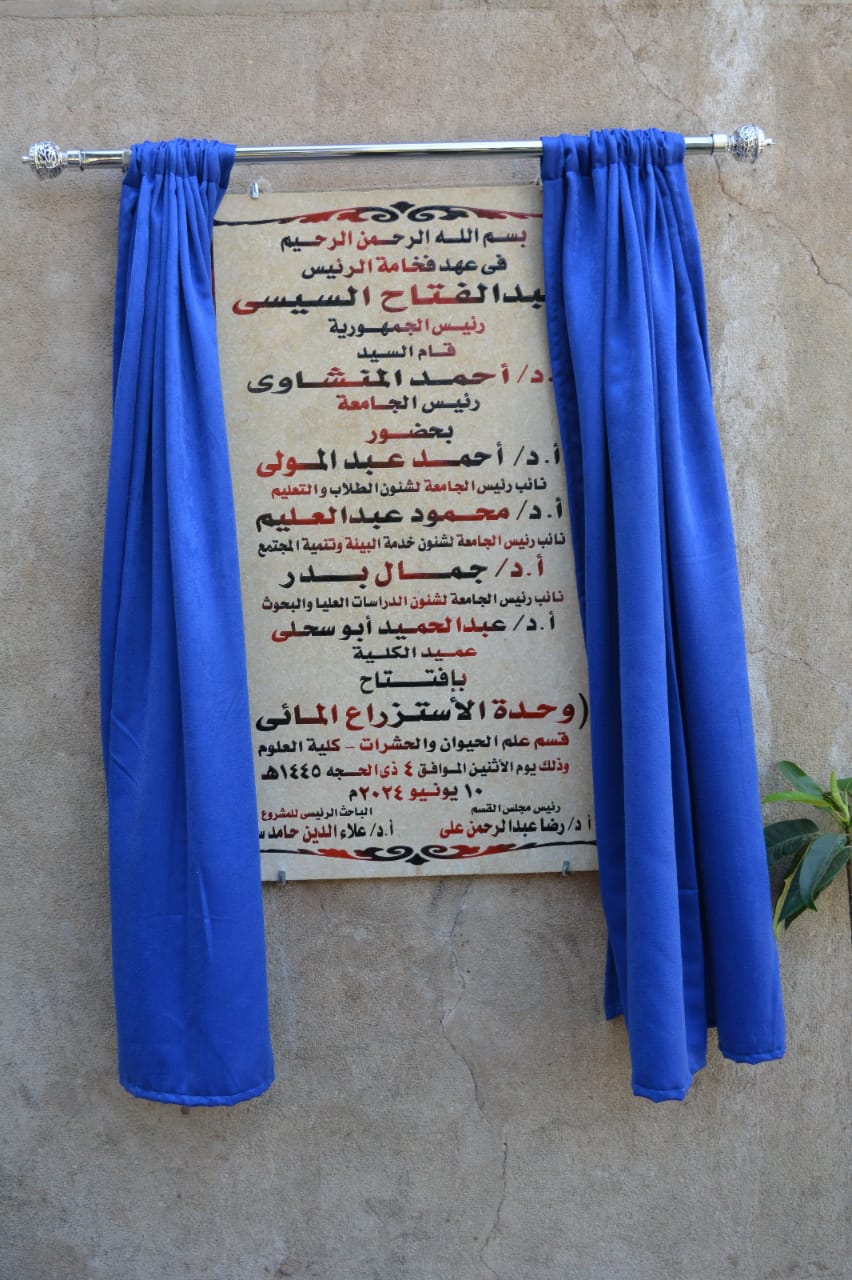 بسم الله الرحمن الرحيم
فى عهد فخامة الرئيس
بدالفتاح السيسى
رئيس الجمهورية
قام السيد
.د/ أحمد المنشاوى
رئيس الجامعة
بحضور
أ.د/ أحمد عبد المولى
نائب رئيس الجامعة لشئون الطلاب والتعليم
أ.د/ محمود عبدالعليم
نائب رئيس الجامعة لشئون خدمة البيئة وتنمية المجتمع
أ.د/ جمال بدر
نائب رئيس الجامعة لشئون الدراسات العليا والبحوث
أ.د/ عبدالحميد أبو سحلى
عميد الكلية
بإفتتاح
(وحدة الأستزراع المائى
قسم علم الحيوان والحشرات - كلية العلوم
وذلك يوم الأثنين الموافق ٤ ذى الحجه ١٤٤٥هـ
١٠ يونيو ٢٠٢٤م
رئيس مجلس القسم
أ.د/ رضا عبدالرحمن على
الباحث الرئيسى للمشروع
أ.د/ علاء الدين حامد س